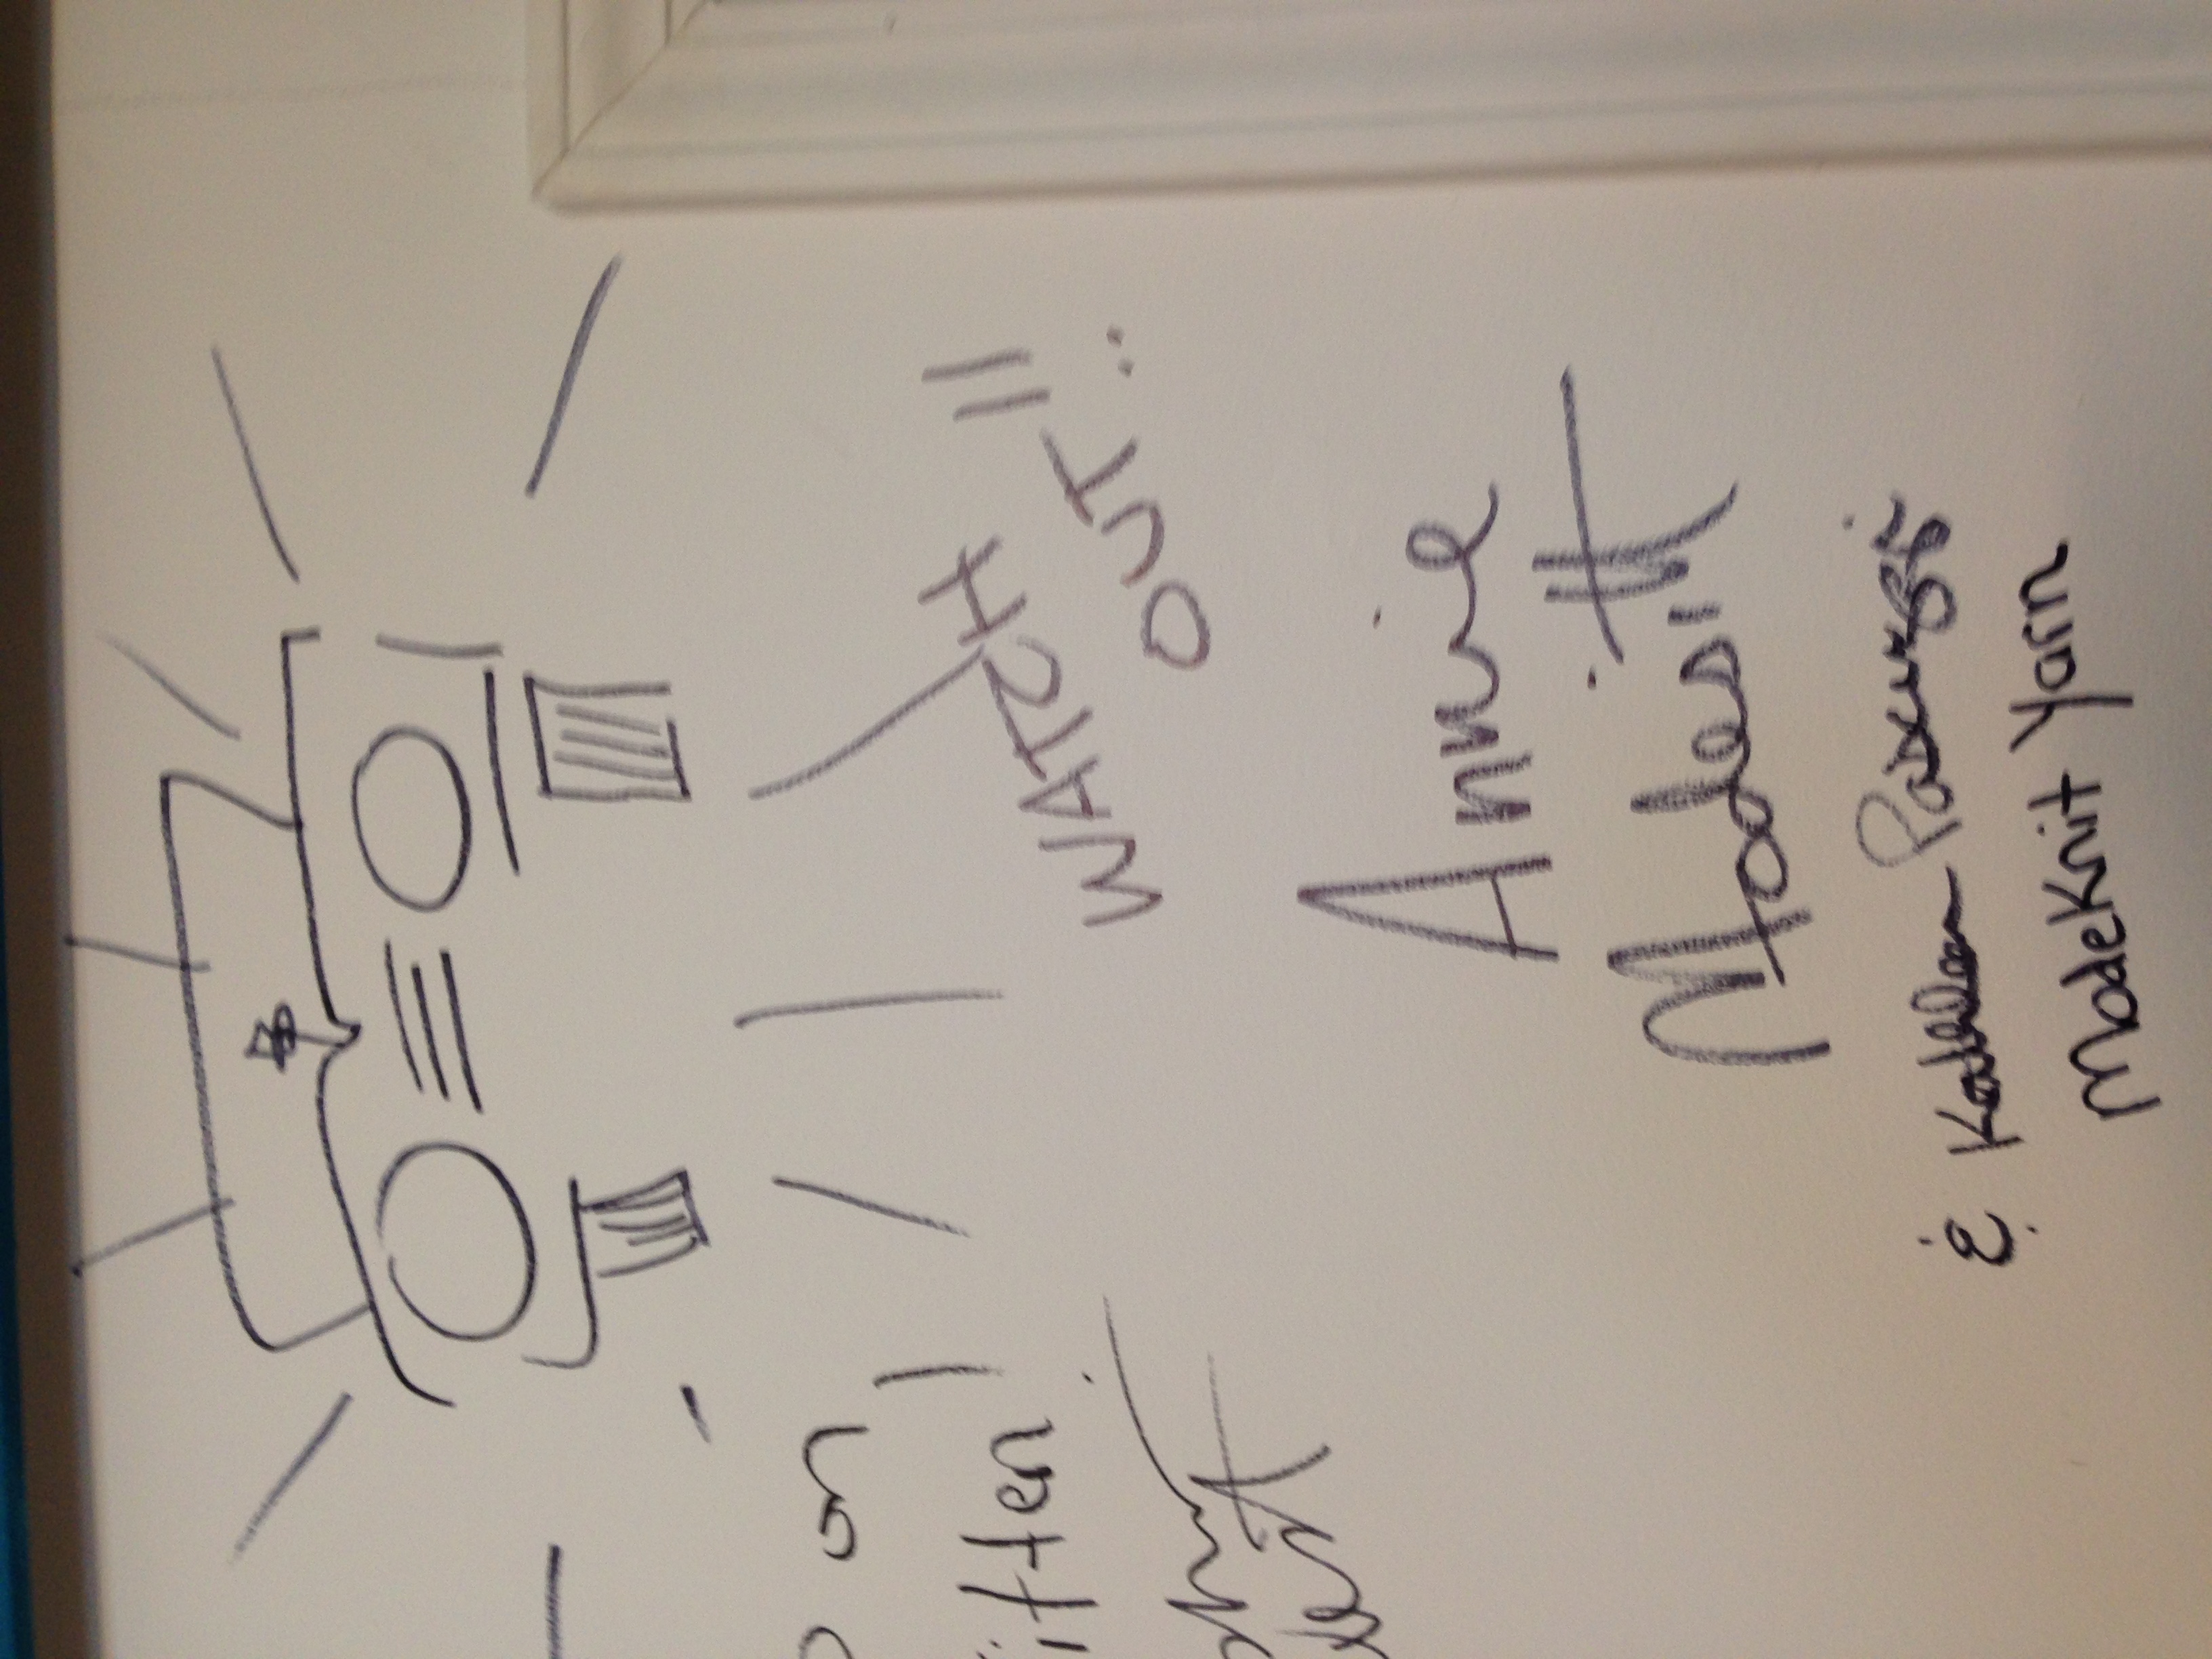 on
WATCH
OUT!!
Annie
Modesitt
& Kathleen Pascuzzi
ModeKnit Yarn